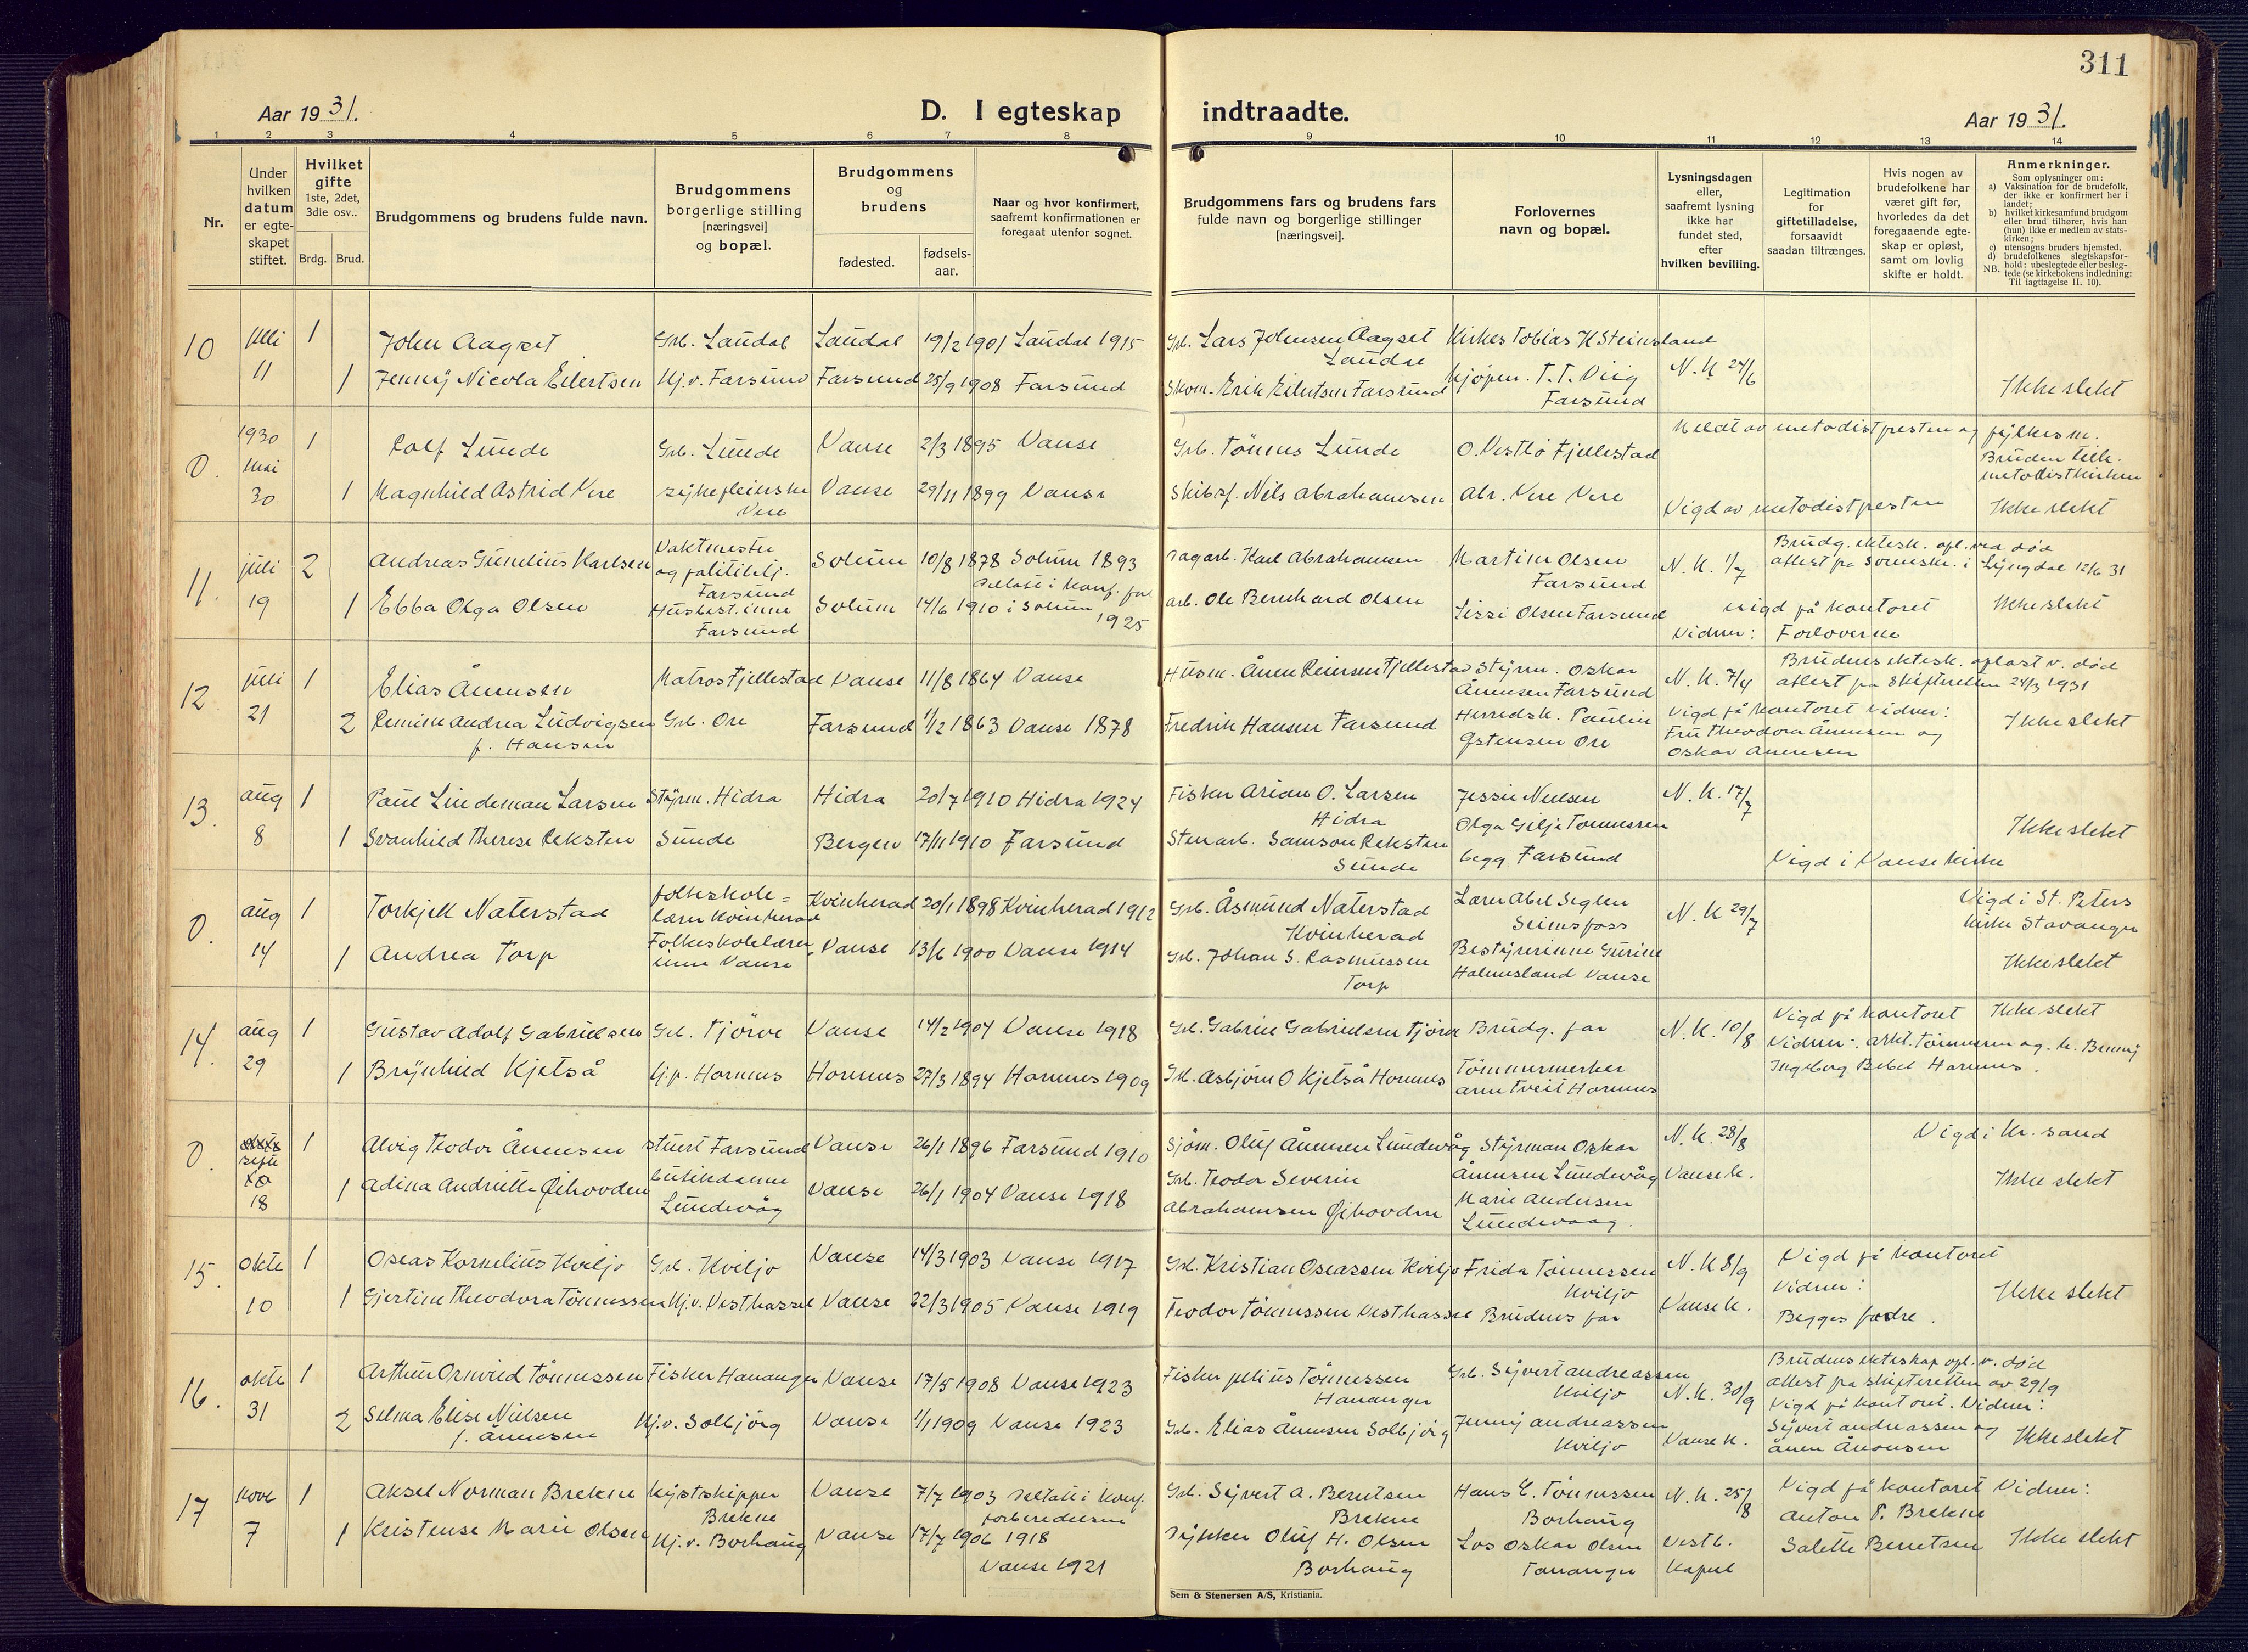 311
Aar 1931.
D. I egteskap indtraadte.
Aar 1931.
1 2 3 4 5 6 7 8 9 10 11 12 13 14
Nr.
Under hvilken datum er egteskapet stiftet.
Hvilket gifte 1ste, 2det, 3die osv..
Brdg. Brud.
Brudgommens og brudens fulde navn.
Brudgommens borgerlige stilling [næringsvei] og bopæl.
Brudgommens og brudens
fødested.
fødsels-aar.
Naar og hvor konfirmert, saafremt konfirmationen er foregaat utenfor sognet.
Brudgommens fars og brudens fars fulde navn og borgerlige stillinger [næringsvei].
Forlovernes navn og bopæl.
Lysningsdagen eller, saafremt lysning ikke har fundet sted, efter hvilken bevilling.
Legitimation for giftetilladelse, forsaavidt saadan tiltrænges.
Hvis nogen av brudefolkene har været gift før, hvorledes da det foregaaende egteskap er opløst, samt om lovlig skifte er holdt.
Anmerkninger.
Som oplysninger om:
a) Vaksination for de brudefolk, der ikke er konfirmert her i landet;
b) hvilket kirkesamfund brudgom eller brud tilhører, hvis han (hun) ikke er medlem av statskirken;
c) utensogns bruders hjemsted.
d) brudefolkenes slegtskapsforhold: ubeslegtede eller beslegtede (se kirkebokens indledning:
NB. Til iagttagelse II. 10).
10 juli 1 John Aagset Grb. Laudal Laudal 19/2 1901 Laudal 1915 Grb. Lars Johnsen Aagset Laudal Kirkes Tobias K Steinsland N.K. 24/6
11 1 Jenny Nicola Eilertsen Hj.v. Farsund Farsund 25/9 1908 Farsund Skom. Erik Eilertsen Farsund Kjøpm. T.T. Viig Farsund Ikke slekt
0. 1930 mai 1 Rolf Lunde Grb. Lunde Vanse 2/3 1895 Vanse Grb. Tönnes Lunde O. Vestbö Fjellestad Meldt av metodistpresten og fylkesm. Bruden tilh. metodistkirken
30 1 Magnhild Astrid Vere sykepleierske Vere Vanse 29/11 1899 Vanse Skibsf. Nils Abrahamsen Abr. Vere Vere Vigd av metodistpresten Ikke slekt
11. juli 2 Andreas Gunelius Karlsen Vaktmester og politibtj. Farsund Solum 10/8 1878 Solum 1893 Sagarb. Karl Abrahamsen Martin Olsen Farsund N.K. 1/7 Brudg. ektesk. opl. ved död attest fra Sorenskr. i Lyngdal 12/6 31
19 1 Ebba Olga Olsen Husbest.inne Farsund Solum 14/6 1910 Deltatt i konf. for. i Solum 1925 arb. Ole Bernhard Olsen Lissi Olsen Farsund vigd på kontoret Vidner: Forloverne Ikke slekt
12. juli 1 Elias Ånensen Matros Fjellestad Vanse 11/8 1864 Vanse Husm. Ånen Reinsen Fjellestad Styrm. Oskar Ånensen Farsund N.K. 7/4 Brudens ektesk. oplöst v. död attest fra skifteretten 24/3 1931
21 2 Remine Andrea Ludvigsen f. Hansen Grb. Ore Farsund 1/12 1863 Vanse 1878 Fredrik Hansen Farsund Herredsk. Paulin Gstensen Ore Vigd på kontoret Vidner: Fru Theodora Ånensen og Oskar Ånensen Ikke slekt
13. aug 1 Paul Lindeman Larsen Styrm. Hidra Hidra 20/7 1910 Hidra 1924 Fisker Arian O. Larsen Hidra Jessie Nielsen N.K. 17/7
8 1 Svanhild Therese Reksten Sunde Bergen 17/11 1910 Farsund Stenarb. Samson Reksten Sunde Olga Gilje Tönnessen begg Farsund Vigd i Vanse kirke Ikke slekt
0. aug 1 Torkjell Naterstad folkeskolelærer Kvinherad Kvinherad 20/1 1898 Kvinherad 1912 Grb. Åsmund Naterstad Kvinherad Lærer Abel Seglem Seimsfoss N.K 29/7 Vigd i St. Peters kirke Stavanger
14 1 Andrea Torp Folkeskolelærerinne Vanse Vanse 13/6 1900 Vanse 1914 Grb. Johan S. Rasmussen Torp Bestyrerinne Gurine Holmesland Vanse Ikke slekt
14. aug 1 Gustav Adolf Gabrielsen Grb. Tjörve Vanse 14/2 1904 Vanse 1918 Grb. Gabriel Gabrielsen Tjörve Brudg. far N.K. 10/8 Vigd på kontoret Ikke slekt
29 1 Brynhild Kjetså tj.p. Hornnes Hornnes 27/3 1894 Hornnes 1909 Grb. Asbjörn O Kjetså Hornnes Tömmermerker Arne Tveit Hornnes Vidner: Tönnesen og Ingeborg Bebel Hornnes.
0. septr 1 Alvig Teodor Ånensen stuert Farsund Vanse 26/1 1896 Farsund 1910 Sjöm. Oluf Ånensen Lundevåg Styrman Oskar Ånensen Lundevåg N.K. 28/8 Vanse k. Vigd i Kr.sand
18 1 Adina Andrielle Öihovden butikdame Lundevåg Vanse 26/1 1904 Vanse 1918 Grb. Teodor Severin Abrahamsen Öihovden Marie Andersen Lundevaag. Ikke slekt
15. okte 1 Oseas Kornelius Kviljo Grb. Kviljo Vanse 14/3 1903 Vanse 1917 Grb. Kristian Oseassen Kviljo Frida Tönnessen Kviljo N.K 8/9 Vigd på kontoret
10 1 Gjertine Theodora Tönnessen Hj.v. Vesthassel Vanse 22/3 1905 Vanse 1919 Teodor Tönnessen Vesthassel Brudens far Vanse k. Vidner: Begges fædre. Ikke slekt
16. okte 1 Arthur Ornvild Tönnessen Fisker Hananger Vanse 17/5 1908 Vanse 1923 Fisker Julius Tönnessen Hananger Grb. Syvert Andreassen Kviljo N.K. 30/9 Brudens ekteskap opl. v. död attest fra skifteretten av 29/9
31 2 Selma Elise Nielsen f. Ånensen Hj.v. Solbjörg Vanse 1/1 1909 Vanse 1923 Grb. Elias Ånensen Solbjörg Jenny Andreassen Kviljo Vanse k. Vigd på kontoret. Vidner: Syvert Andreassen og Ånen Ånonsen Ikke slekt
17 nove 1 Aksel Norman Brekne Kystskipper Brekne Vanse 7/7 1903 Deltatt i konf. forberedelsen 1918 Grb. Syvert A. Berntsen Brekne Hans E. Tönnessen Borhaug N.K. 25/8 Vigd på kontoret Vidner: Anton P. Brekne
7 1 Kristense Marie Olsen Hj.v. Borhaug Vanse 17/7 1906 Vanse 1921 Oluf H. Olsen Borhaug Los Oskar Olsen Tananger Vestb. Kapel Salette Berntsen Ikke slekt
Sem & Stenersen A/S, Kristiania.